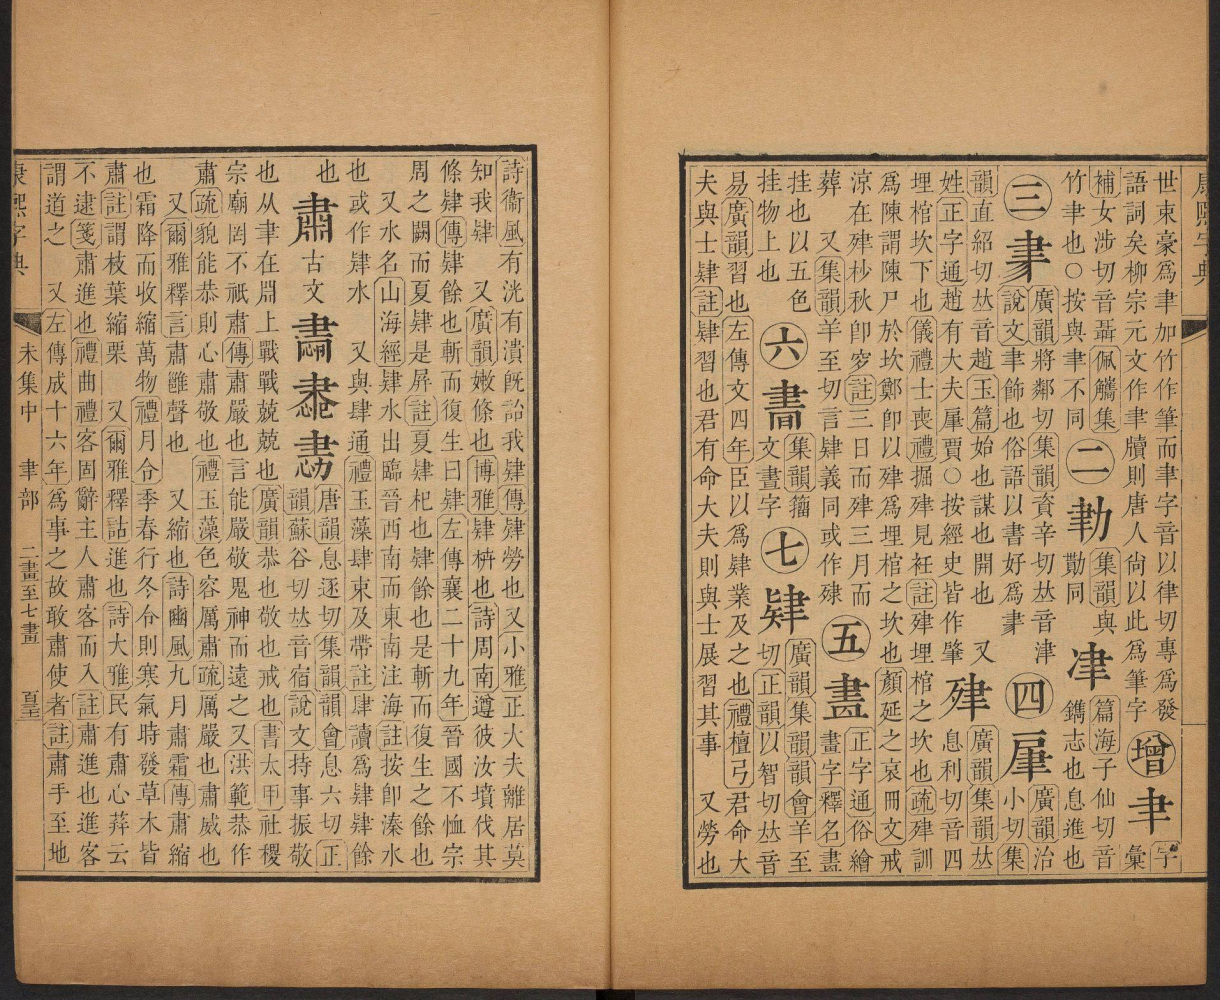 康熙字典
世束豪爲聿加竹作筆而聿字音以律切專爲發
語詞矣柳宗元文作聿牘則唐人尙以此爲筆字
增
聿
字
彙
補女涉切音聶佩觿集
竹聿也○按與聿不同
二
集韻與
勯同
津
篇海子仙切音
鐫志也息進也
三
𦘔
廣韻將鄰切集韻資辛切𠀤音津
說文聿飾也俗語以書好爲𦘔
四
𦘚
廣韻治
小切集
韻直紹切𠀤音趙玉篇始也謀也開也　又
姓正字通趙有大夫𦘚賈○按經史皆作肇
肂
廣韻集韻𠀤
息利切音四
埋棺坎下也儀禮士喪禮掘肂見衽註肂埋棺之坎也疏肂訓
爲陳謂陳尸於坎鄭卽以肂爲埋棺之坎也顏延之哀冊文戒
涼在肂杪秋卽穸註三日而肂三月而
葬　又集韻羊至切言肄義同或作殔
五
𦘕
正字通俗繪
畫字釋名𦘕
挂也以五色
挂物上也
六
集韻籀
文書字
七
肄
廣韻集韻韻會羊至
切正韻以智切𠀤音
易廣韻習也左傳文四年臣以爲肄業及之也禮檀弓君命大
夫與士肄註肄習也君有命大夫則與士展習其事　又勞也
詩衞風有洸有潰旣詒我肄傳肄勞也又小雅正大夫離居莫
知我肄　又廣韻嫩條也博雅肄枿也詩周南遵彼汝墳伐其
條肄傳肄餘也斬而復生曰肄左傳襄二十九年晉國不恤宗
周之闕而夏肄是屏註夏肄杞也肄餘也是斬而復生之餘也
又水名山海經肄水出臨晉西南而東南注海註按卽溱水
也或作肆水　又與肆通禮玉藻肆束及帶註肆讀爲肄肄餘
也
肅
古文
唐韻息逐切集韻韻會息六切正
韻蘇谷切𠀤音宿說文持事振敬
也从聿在𣶒上戰戰兢兢也廣韻恭也敬也戒也書太甲社稷
宗廟罔不祇肅傳肅嚴也言能嚴敬鬼神而遠之又洪範恭作
肅疏貌能恭則心肅敬也禮玉藻色容厲肅疏厲嚴也肅威也
又爾雅釋言肅雝聲也　又縮也詩豳風九月肅霜傳肅縮
也霜降而收縮萬物禮月令季春行冬令則寒氣時發草木皆
肅註謂枝葉縮栗　又爾雅釋詁進也詩大雅民有肅心荓云
不逮箋肅進也禮曲禮客固辭主人肅客而入註肅進也進客
謂道之　又左傳成十六年爲事之故敢肅使者註肅手至地
康熙字典　未集中　聿部　二畫至七畫